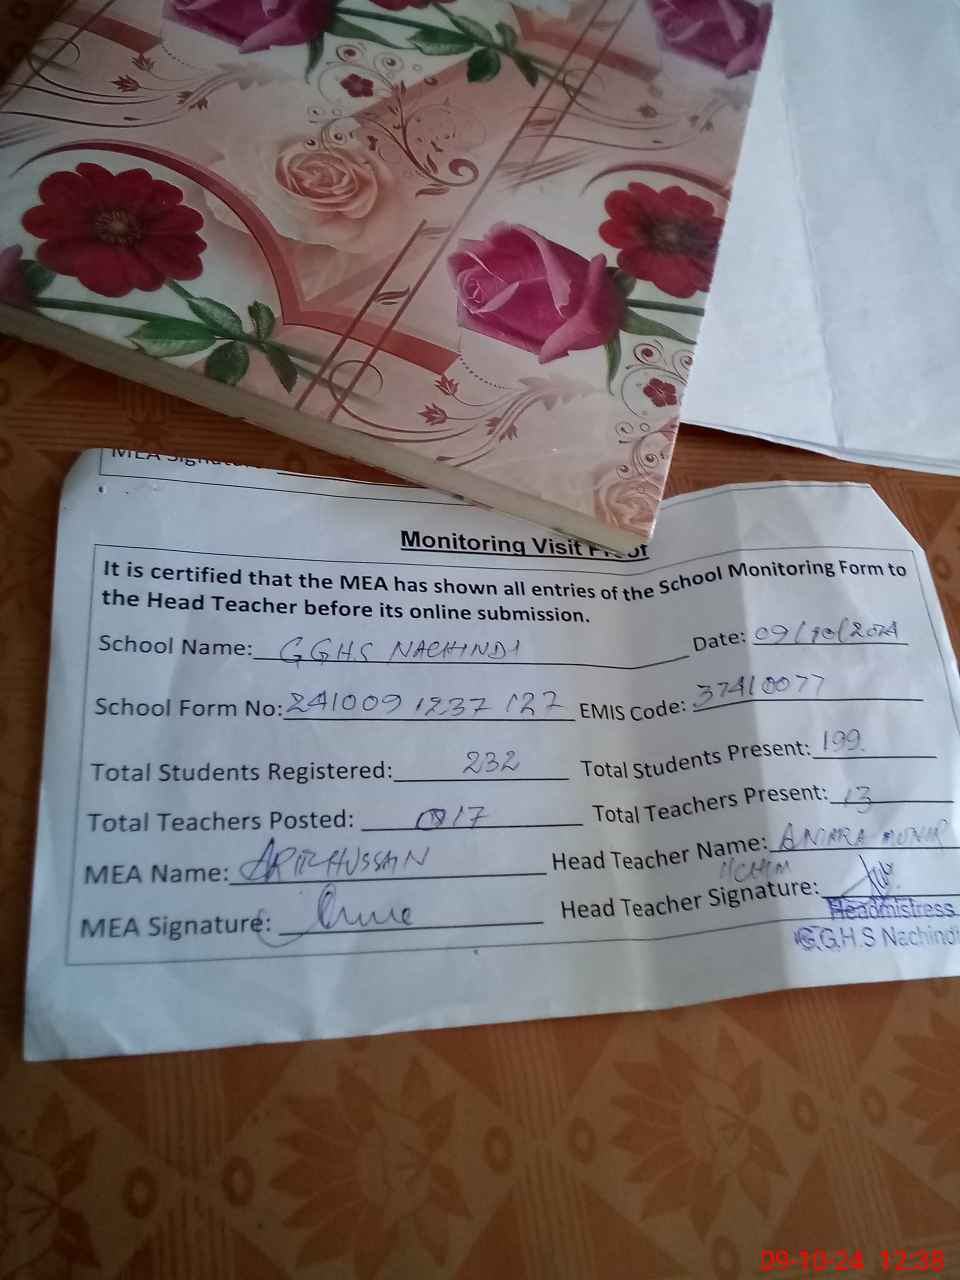 MEA Signature:
Monitoring Visit Proof
It is certified that the MEA has shown all entries of the School Monitoring Form to
the Head Teacher before its online submission.
School Name: GGHS NACHINDI Date: 09/10/2024
School Form No: 241009 1237 127 EMIS Code: 37410077
Total Students Registered: 232 Total Students Present: 199
Total Teachers Posted: 17 Total Teachers Present: 13
MEA Name: HUSSAIN Head Teacher Name:
MEA Signature: Head Teacher Signature:
Headmistress
G.G.H.S Nachindi
09-10-24 12:38